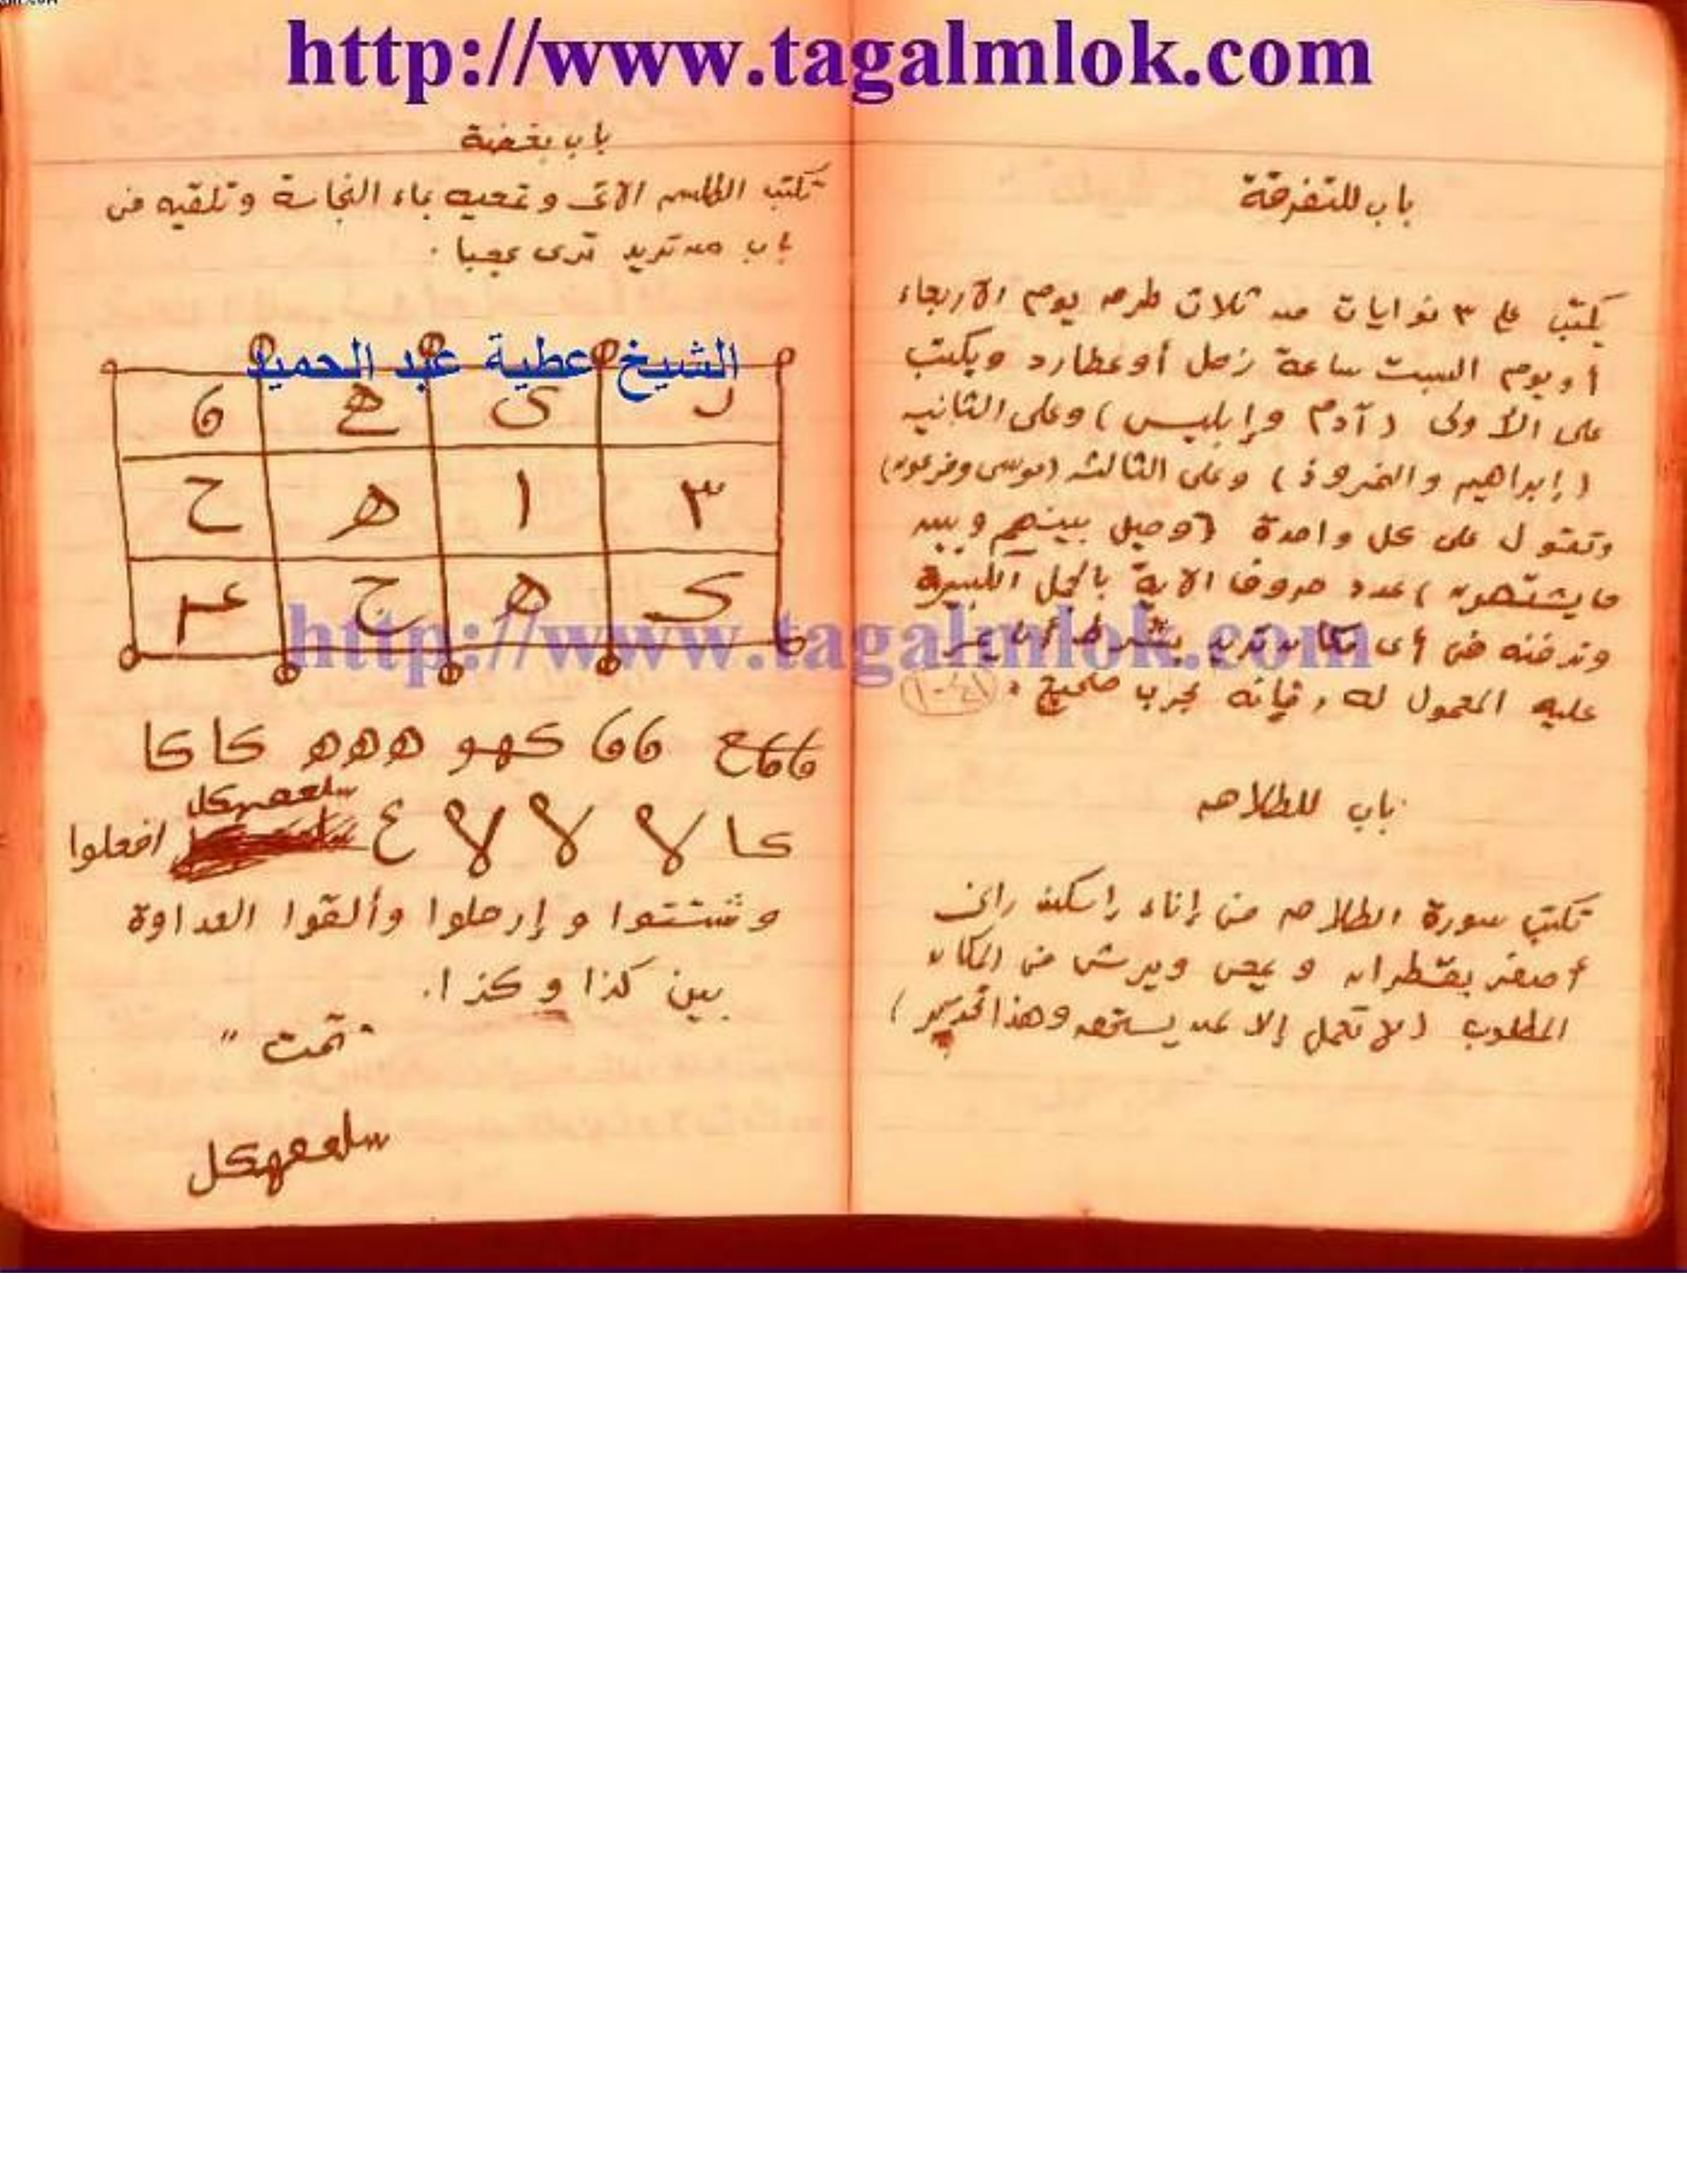 http://www.tagalmlok.com
باب للتفرقة
يكتب على ٣ نوايات من ثلاث طرم يوم الاربعاء
أو يوم السبت ساعة زحل أو عطارد ويكتب
على الأولى (آدم وإبليس) وعلى الثانيه
(إبراهيم والنمروذ) وعلى الثالثه (موسى وفرعون)
وتقول على كل واحدة (وحيل بينهم وبين
ما يشتهون) عدد حروف الآية بالجمل الكبير
وتدفنه فى أى مكان تريد بشرط أن يمر
عليه المعمول له، فإنه مجرب صحيح.
باب للطلاق
تكتب سورة الطلاق فى إناء
أصفر بقطران ويمحى ويرش فى المكان
المطلوب (لا تعمل إلا لمن يستحق وهذا تحذير)
باب بغضة
تكتب الطلسم الآتى وتمحيه بماء النجاسة وتلقيه فى
باب من تريد ترى عجبا.
الشيخ عطية عبد الحميد
ر ى هـ 6
٣ ا ه ح
ى ه ج
http://www.tagalmlok.com
66 كهو ههه كا كا
كا لا لا لا ع سلعفهكل افعلوا
وشتتوا وإرحلوا وألقوا العداوة
بين كذا وكذا.
"تمت"
سلعفهكل